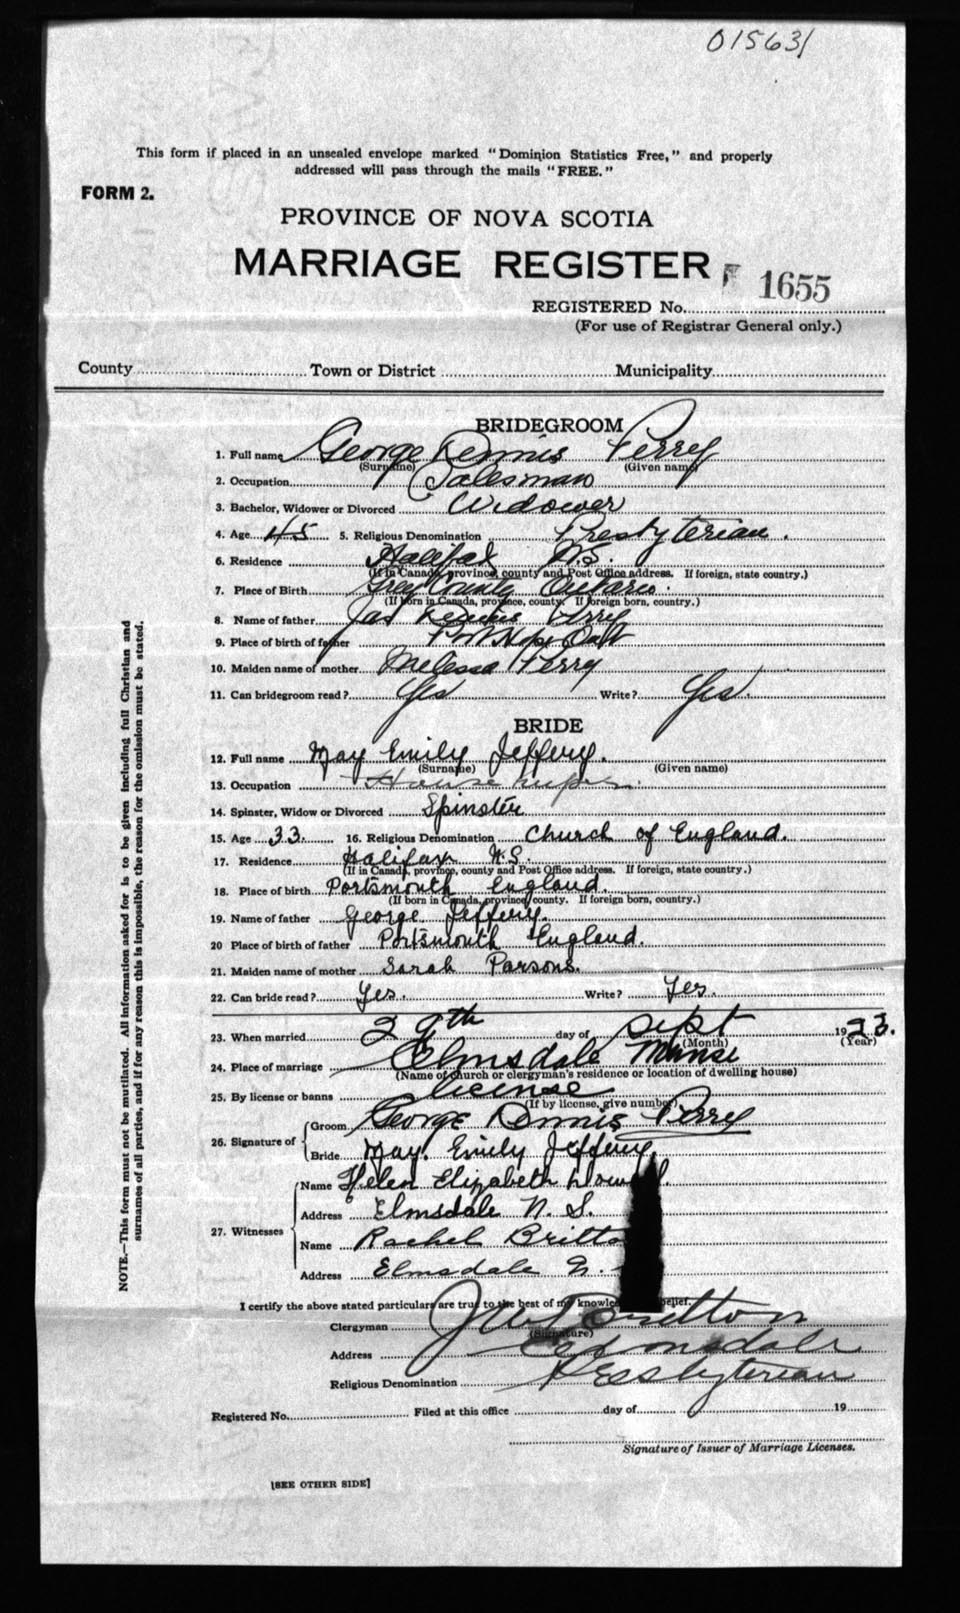 015631
This form if placed in an unsealed envelope marked "Dominion Statistics Free," and properly
addressed will pass through the mails "FREE."
FORM 2.
PROVINCE OF NOVA SCOTIA
MARRIAGE REGISTER
1655
REGISTERED No.
(For use of Registrar General only.)
County Town or District Municipality
BRIDEGROOM
1. Full name George Dennis Perry
(Surname) (Given name)
2. Occupation Salesman
3. Bachelor, Widower or Divorced Widower
4. Age 45 5. Religious Denomination Presbyterian.
6. Residence Halifax N.S
(If in Canada, province, county and Post Office address. If foreign, state country.)
7. Place of Birth Grey County Ontario.
(If born in Canada, province, county. If foreign born, country.)
8. Name of father Jas Dennis Perry
9. Place of birth of father Port Hope Ont
10. Maiden name of mother Melessa Perry
11. Can bridegroom read? Yes Write? Yes.
BRIDE
12. Full name May Emily Jeffery.
(Surname) (Given name)
13. Occupation
14. Spinster, Widow or Divorced Spinster
15. Age 33. 16. Religious Denomination Church of England.
17. Residence Halifax N.S.
(If in Canada, province, county and Post Office address. If foreign, state country.)
18. Place of birth Portsmouth England.
(If born in Canada, province, county. If foreign born, country.)
19. Name of father George Jeffery.
20 Place of birth of father Portsmouth England.
21. Maiden name of mother Sarah Parsons.
22. Can bride read? Yes. Write? Yes.
23. When married 29th day of Sept 1923.
(Month) (Year)
24. Place of marriage Elmsdale Manse
(Name of church or clergyman's residence or location of dwelling house)
25. By license or banns license
(If by license, give number)
26. Signature of Groom George Dennis Perry
Bride May. Emily Jeffery.
27. Witnesses Name Helen Elizabeth
Address Elmsdale N. S.
Name Rachel
Address Elmsdale N.
I certify the above stated particulars are true to the best of my belief.
Clergyman Britton
(Signature)
Address Elmsdale
Religious Denomination Presbyterian
Registered No. Filed at this office day of 19
Signature of Issuer of Marriage Licenses.
[SEE OTHER SIDE]
NOTE.—This form must not be mutilated. All information asked for is to be given including full Christian and
surnames of all parties, and if for any reason this is impossible, the reason for the omission must be stated.